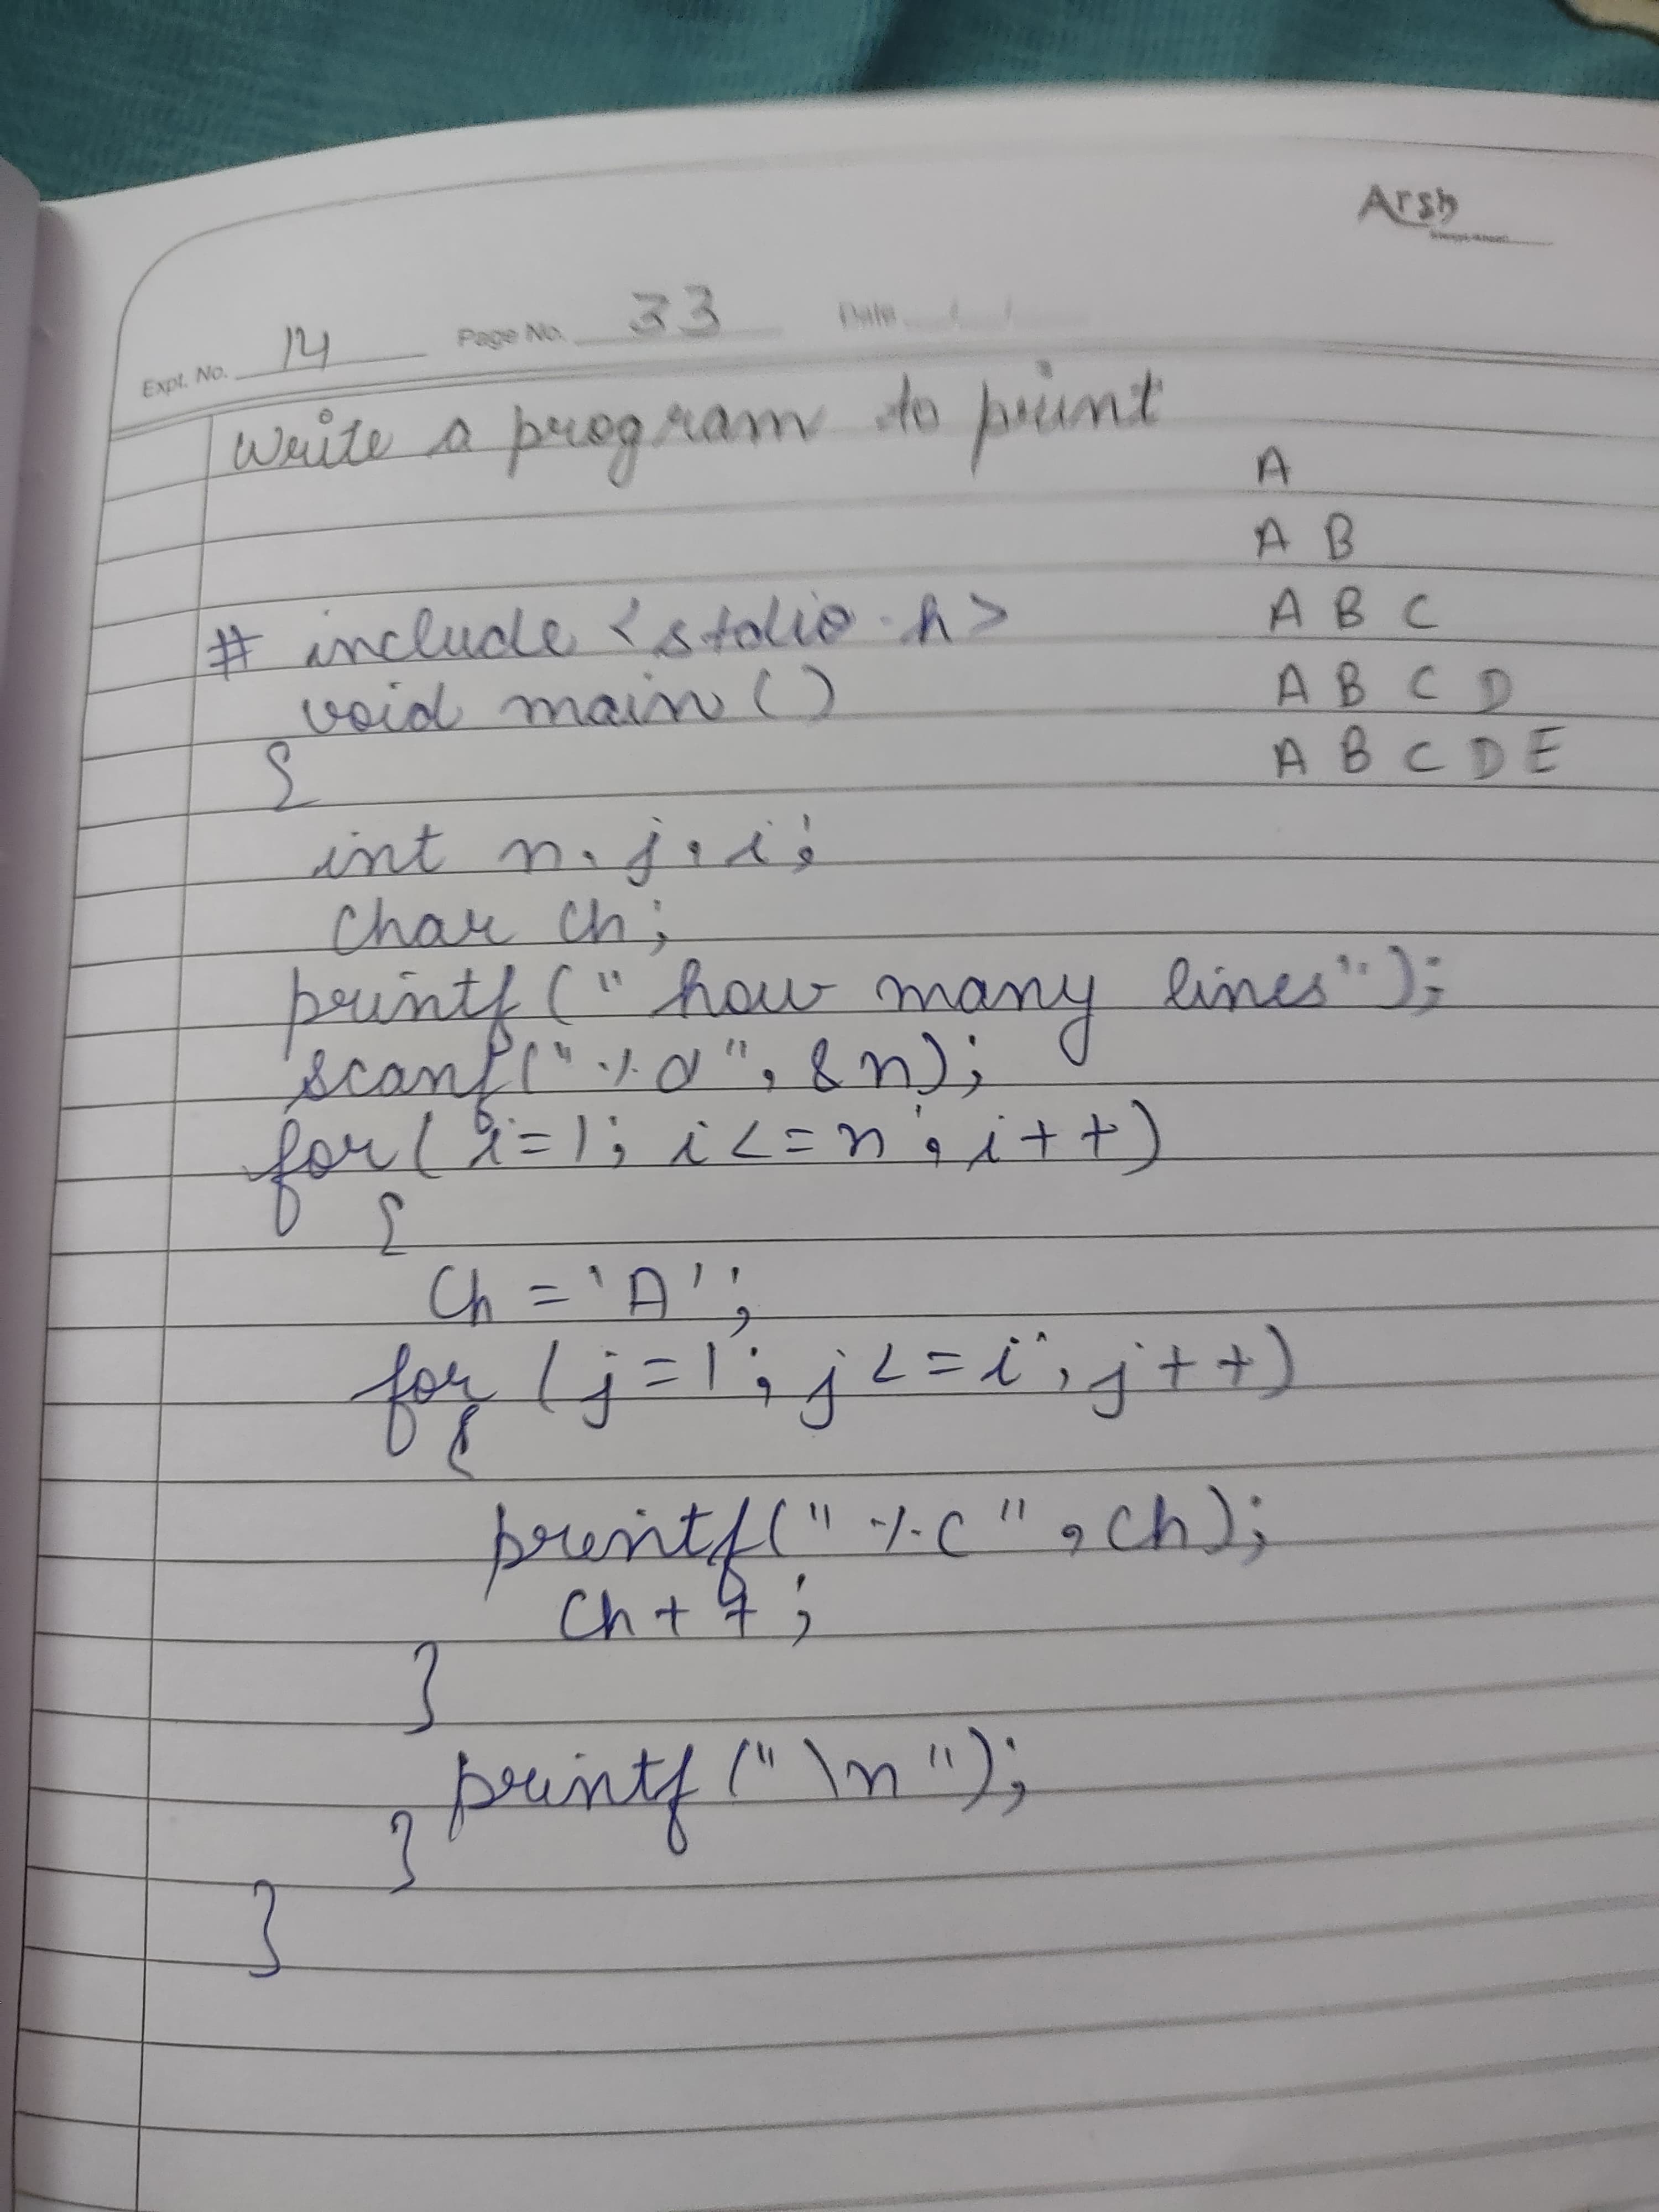 Arsh
Expt. No. 14 Page No. 33 Date
Write a program to print
A
A B
A B C
A B C D
A B C D E
# include <stdio.h>
void main ()
{
int n, j, i;
char ch;
printf (" how many lines");
scanf (" %d ", &n);
for ( i=1; i<=n ; i++)
{
Ch = 'A';
for ( j=1; j<=i; j++)
{
printf(" %c ", Ch);
Ch++;
}
printf (" \n ");
}
}